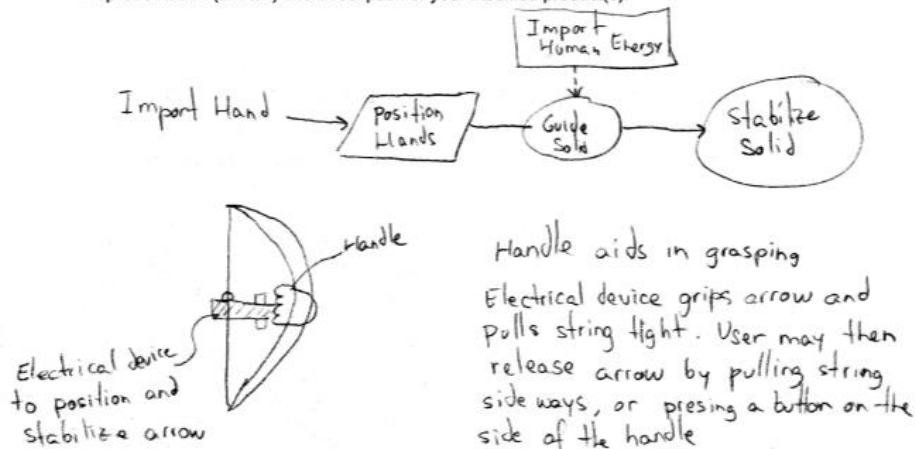 Import
Human Energy
Import Hand
Position
Hands
Guide
Solid
Stabilize
Solid
Handle
Electrical device
to position and
stabilize arrow
Handle aids in grasping
Electrical device grips arrow and
pulls string tight. User may then
release arrow by pulling string
side ways, or presing a button on the
side of the handle